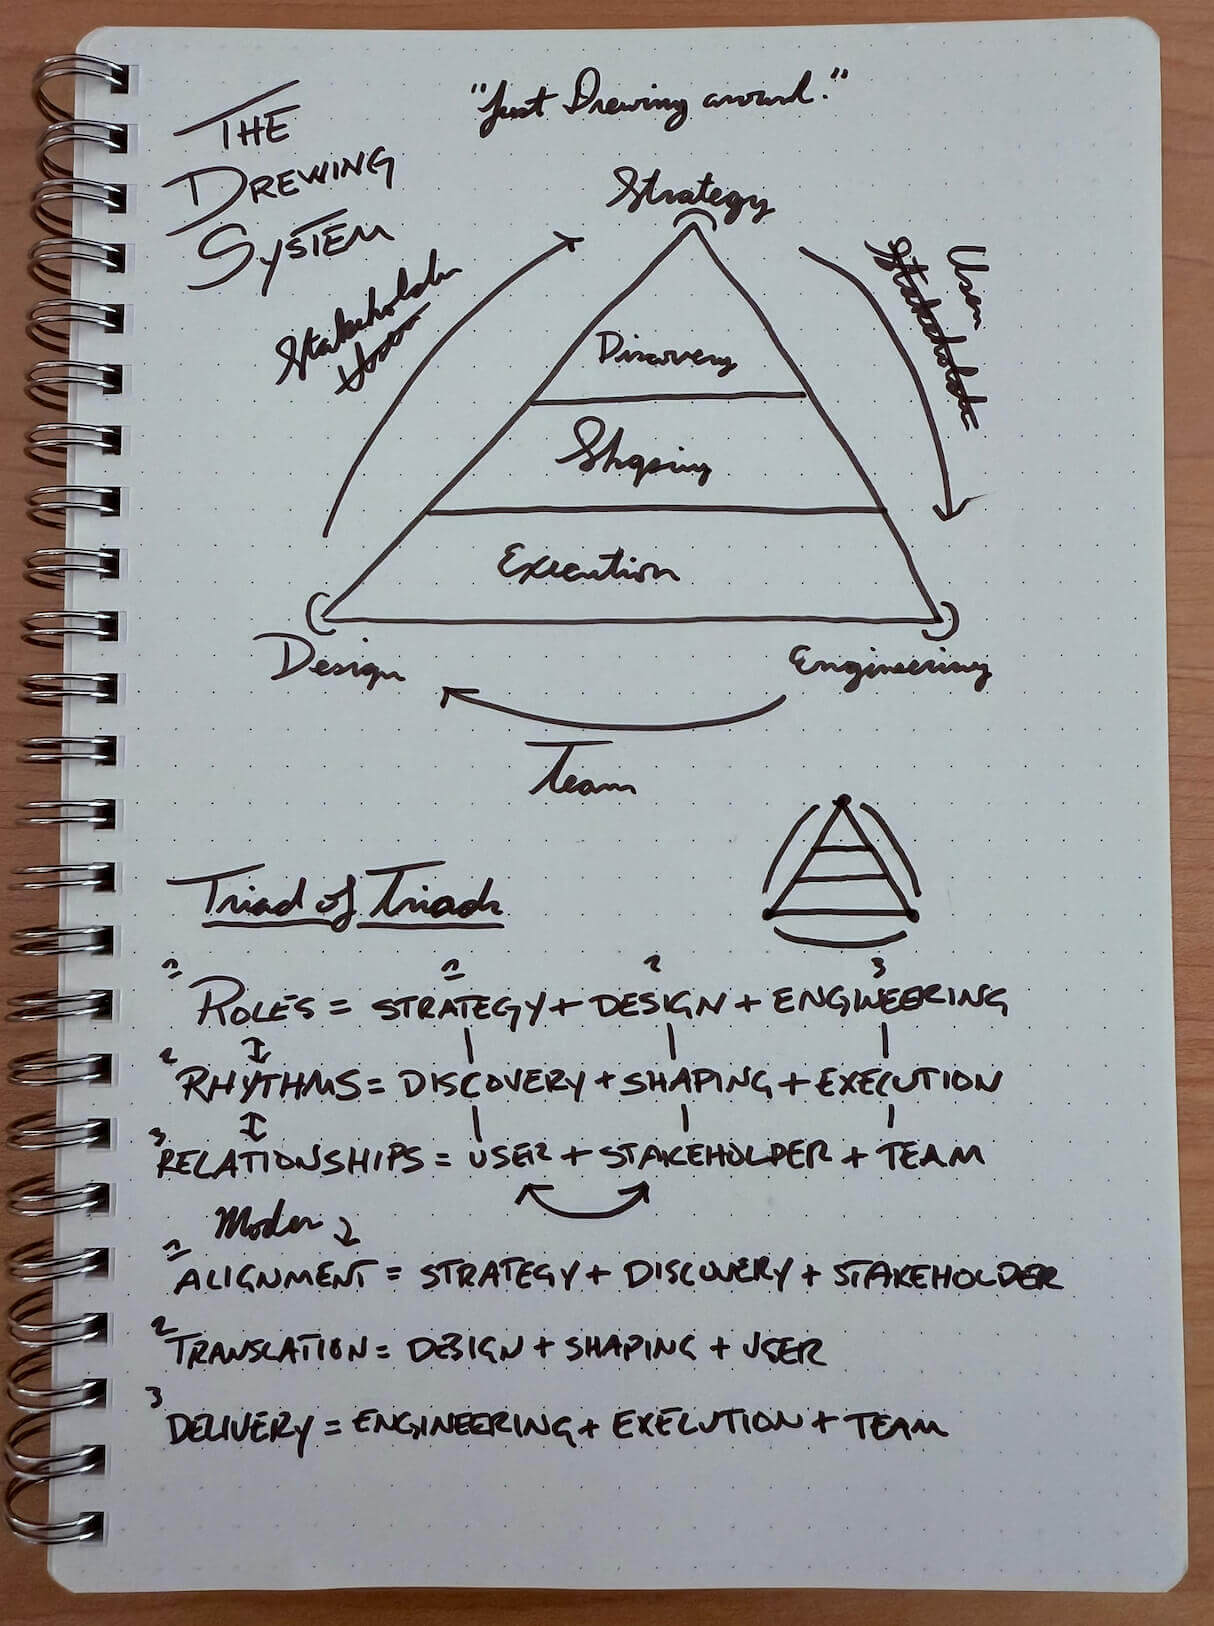 THE
DREWING
SYSTEM
"Just Drewing around."
Strategy
Stakeholder
User
User
Stakeholder
Discovery
Shaping
Execution
Design
Engineering
Team
Triad of Triads
1 2 3
1 ROLES = STRATEGY + DESIGN + ENGINEERING
2 RHYTHMS = DISCOVERY + SHAPING + EXECUTION
3 RELATIONSHIPS = USER + STAKEHOLDER + TEAM
Modes
1 ALIGNMENT = STRATEGY + DISCOVERY + STAKEHOLDER
2 TRANSLATION = DESIGN + SHAPING + USER
3 DELIVERY = ENGINEERING + EXECUTION + TEAM